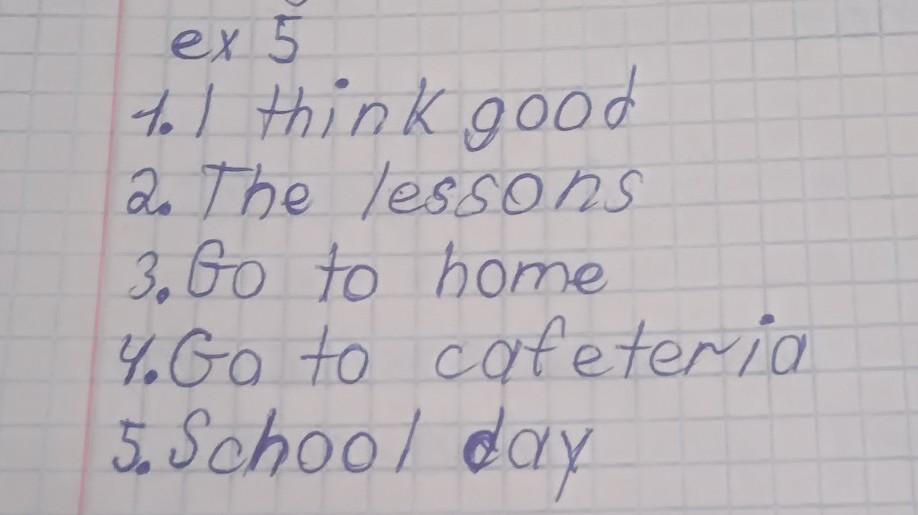 ex 5
1. I think good
2. The lessons
3. Go to home
4. Go to cafeteria
5. School day